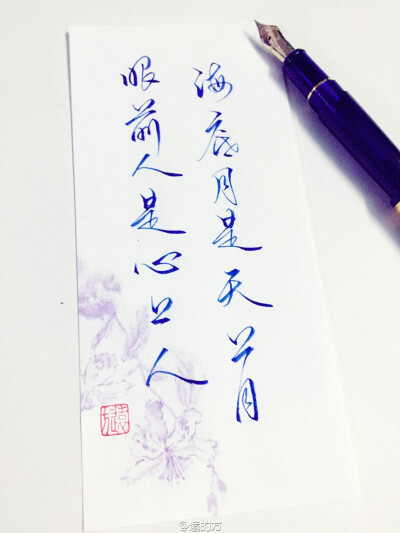 海底月是天上月
眼前人是心上人
@遠的方